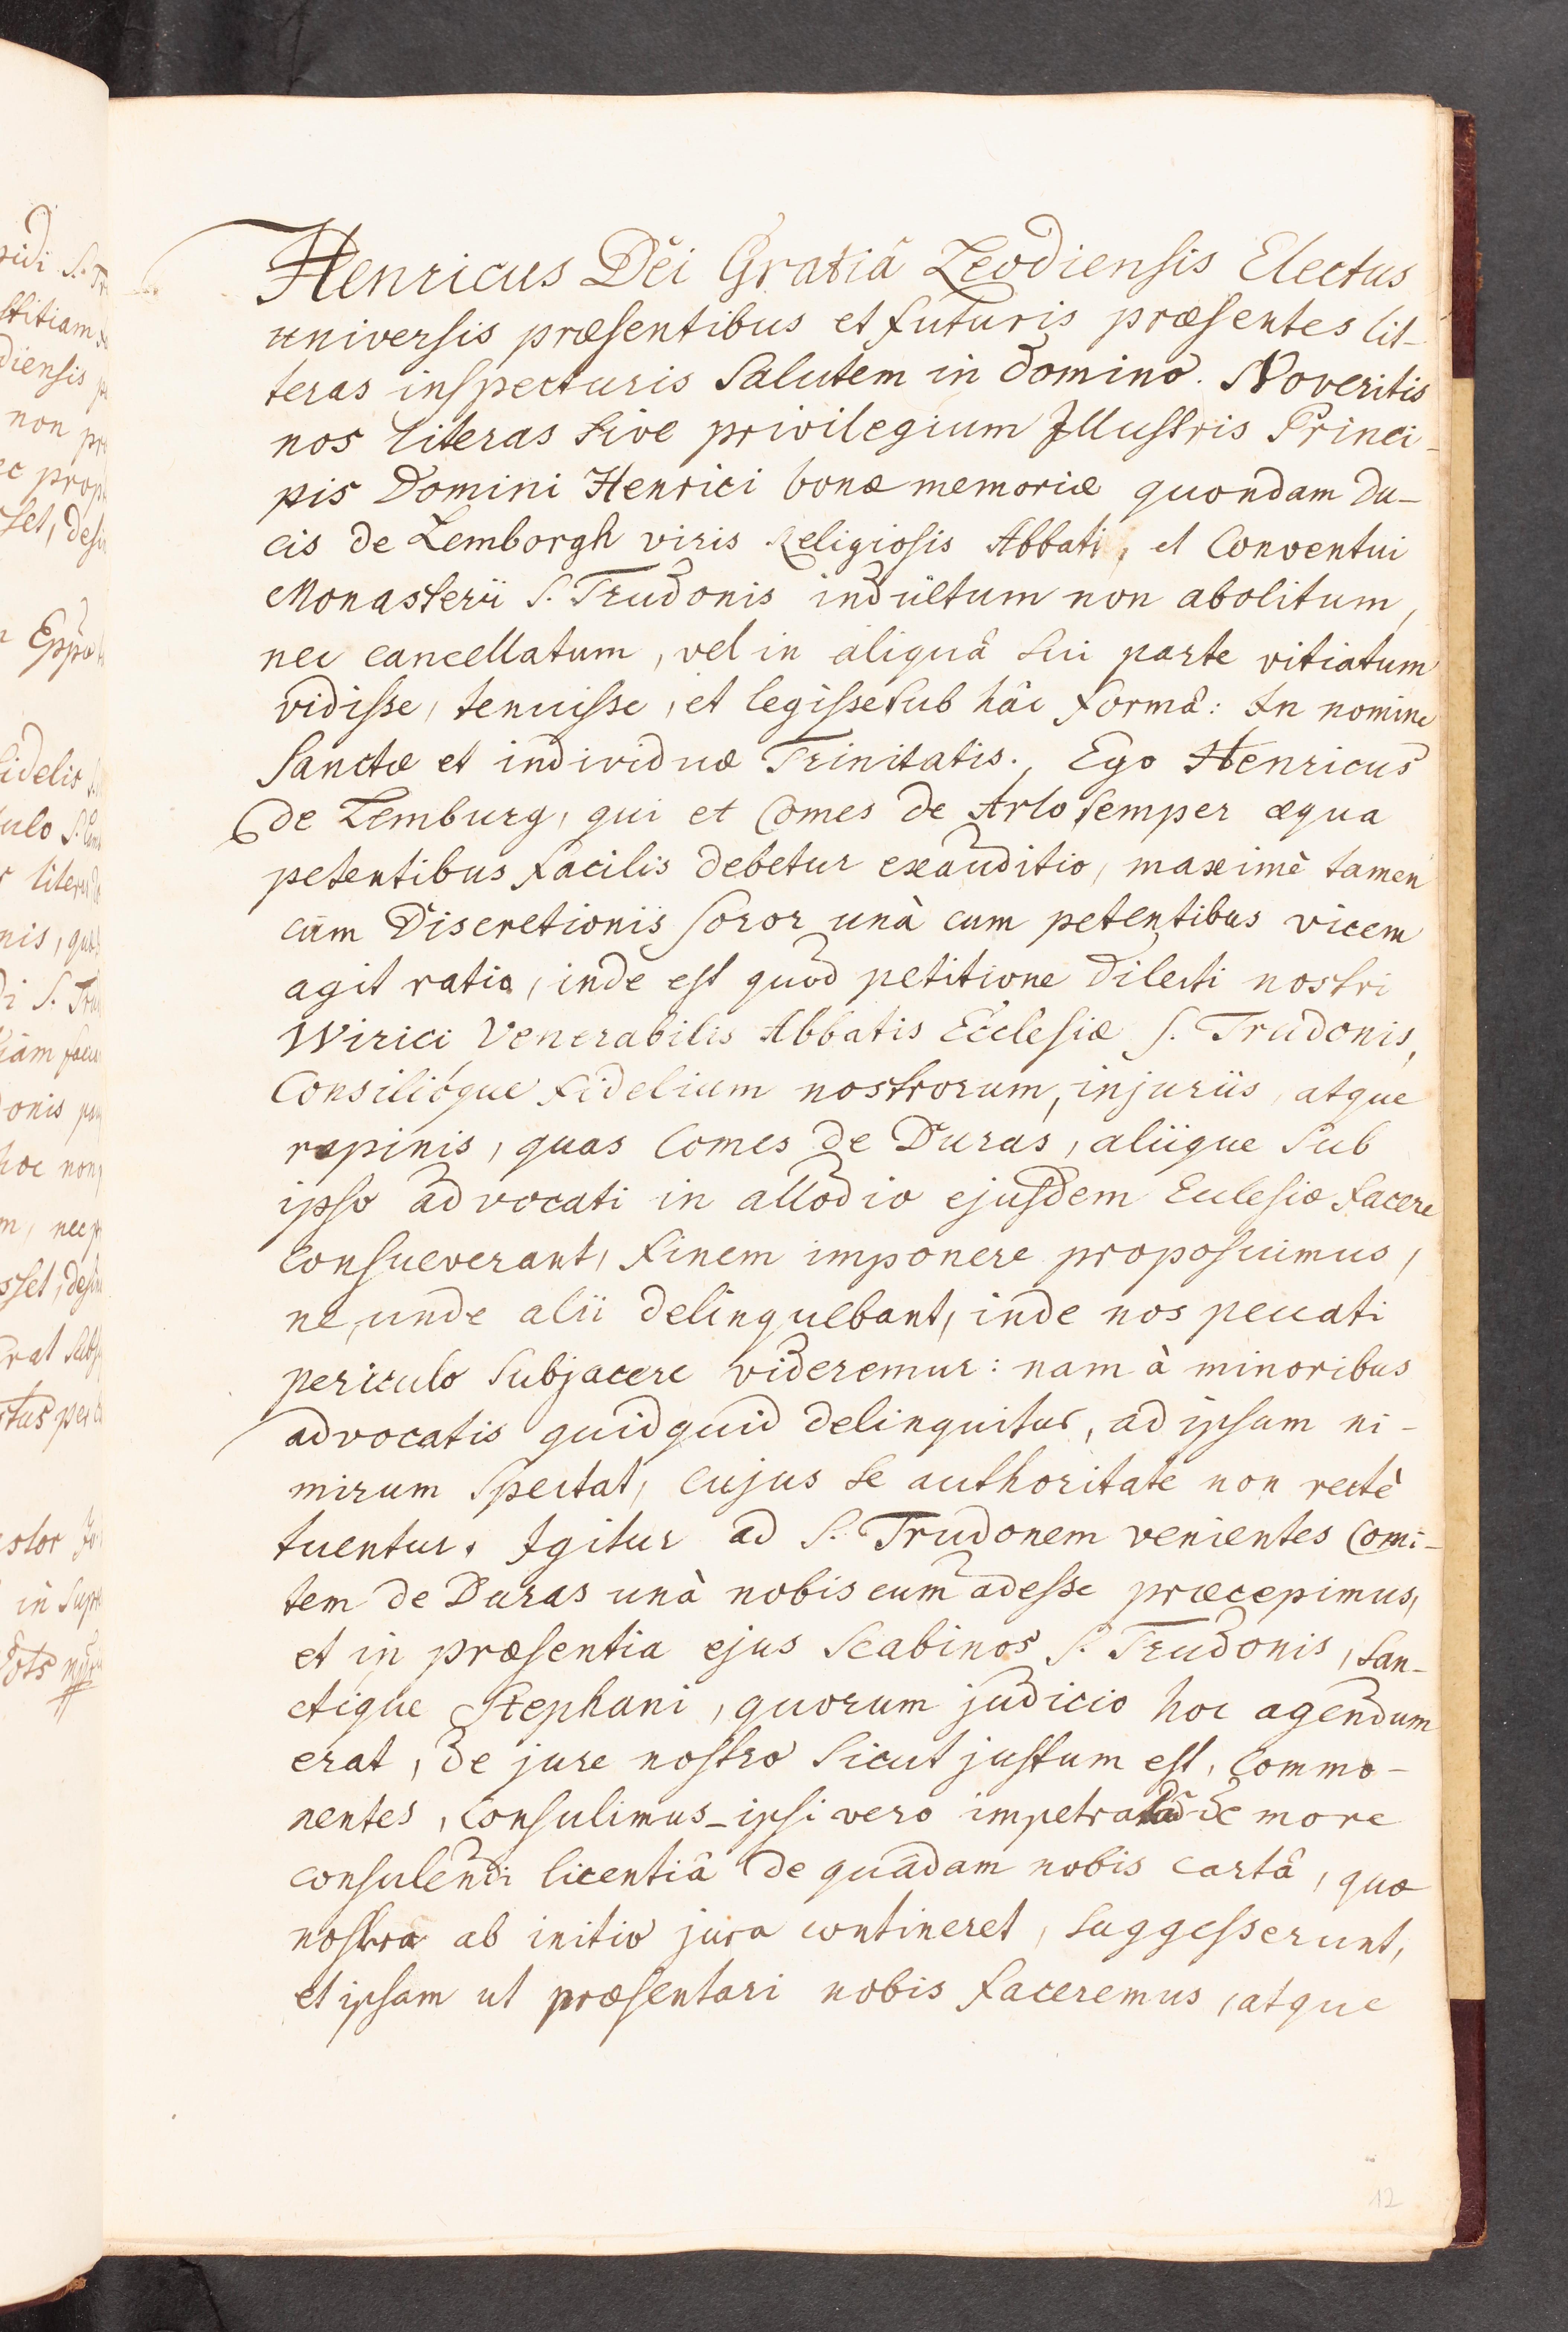 Henricus Dei Gratiâ Leodiensis Electus
universis præsentibus et futuris præsentes lit-
teras inspecturis Salutem in domino. Noveritis
nos literas sive privilegium Illustris Princi-
pis Domini Henrici bonæ memoriæ quondam Du-
cis de Lemborgh viris Religiosis Abbati, et Conventui
Monasterii S. Trudonis indultum non abolitum,
nec cancellatum, vel in aliquâ sui parte vitiatum
vidisse, tenuisse, et legisse sub hâc formâ: In nomine
Sanctæ et individuæ Trinitatis. Ego Henricus
de Lemburg, qui et Comes de Arlo semper æqua
petentibus facilis debetur exauditio, maximè tamen
cùm Discretionis soror unà cum petentibus vicem
agit ratio, inde est quod petitione dilecti nostri
Wirici Venerabilis Abbatis Ecclesiæ S. Trudonis,
Consilióque fidelium nostrorum, injuriis, atque
rapinis, quas Comes de Duras, aliique sub
ipso advocati in allodio ejusdem Ecclesiæ facere
consueverant, finem imponere proposuimus,
ne, unde alii delinquebant, inde nos peccati
periculo subjacere videremur: nam à minoribus
advocatis quidquid delinquitur, ad ipsum ni-
mirum spectat, cujus se authoritate non rectè
tuentur. Igitur ad S. Trudonem venientes Comi-
tem de Duras unà nobiscum adesse præcepimus,
et in præsentia ejus Scabinos S. Trudonis, San-
ctique Stephani, quorum judicio hoc agendum
erat, de jure nostro sicut justum est, commo-
nentes, consulimus_ ipsi vero impetratâ de more
consulendi licentiâ de quâdam nobis cartâ, quæ
nostra ab initio jura contineret, suggesserunt,
et ipsam ut præsentari nobis faceremus, atque
12